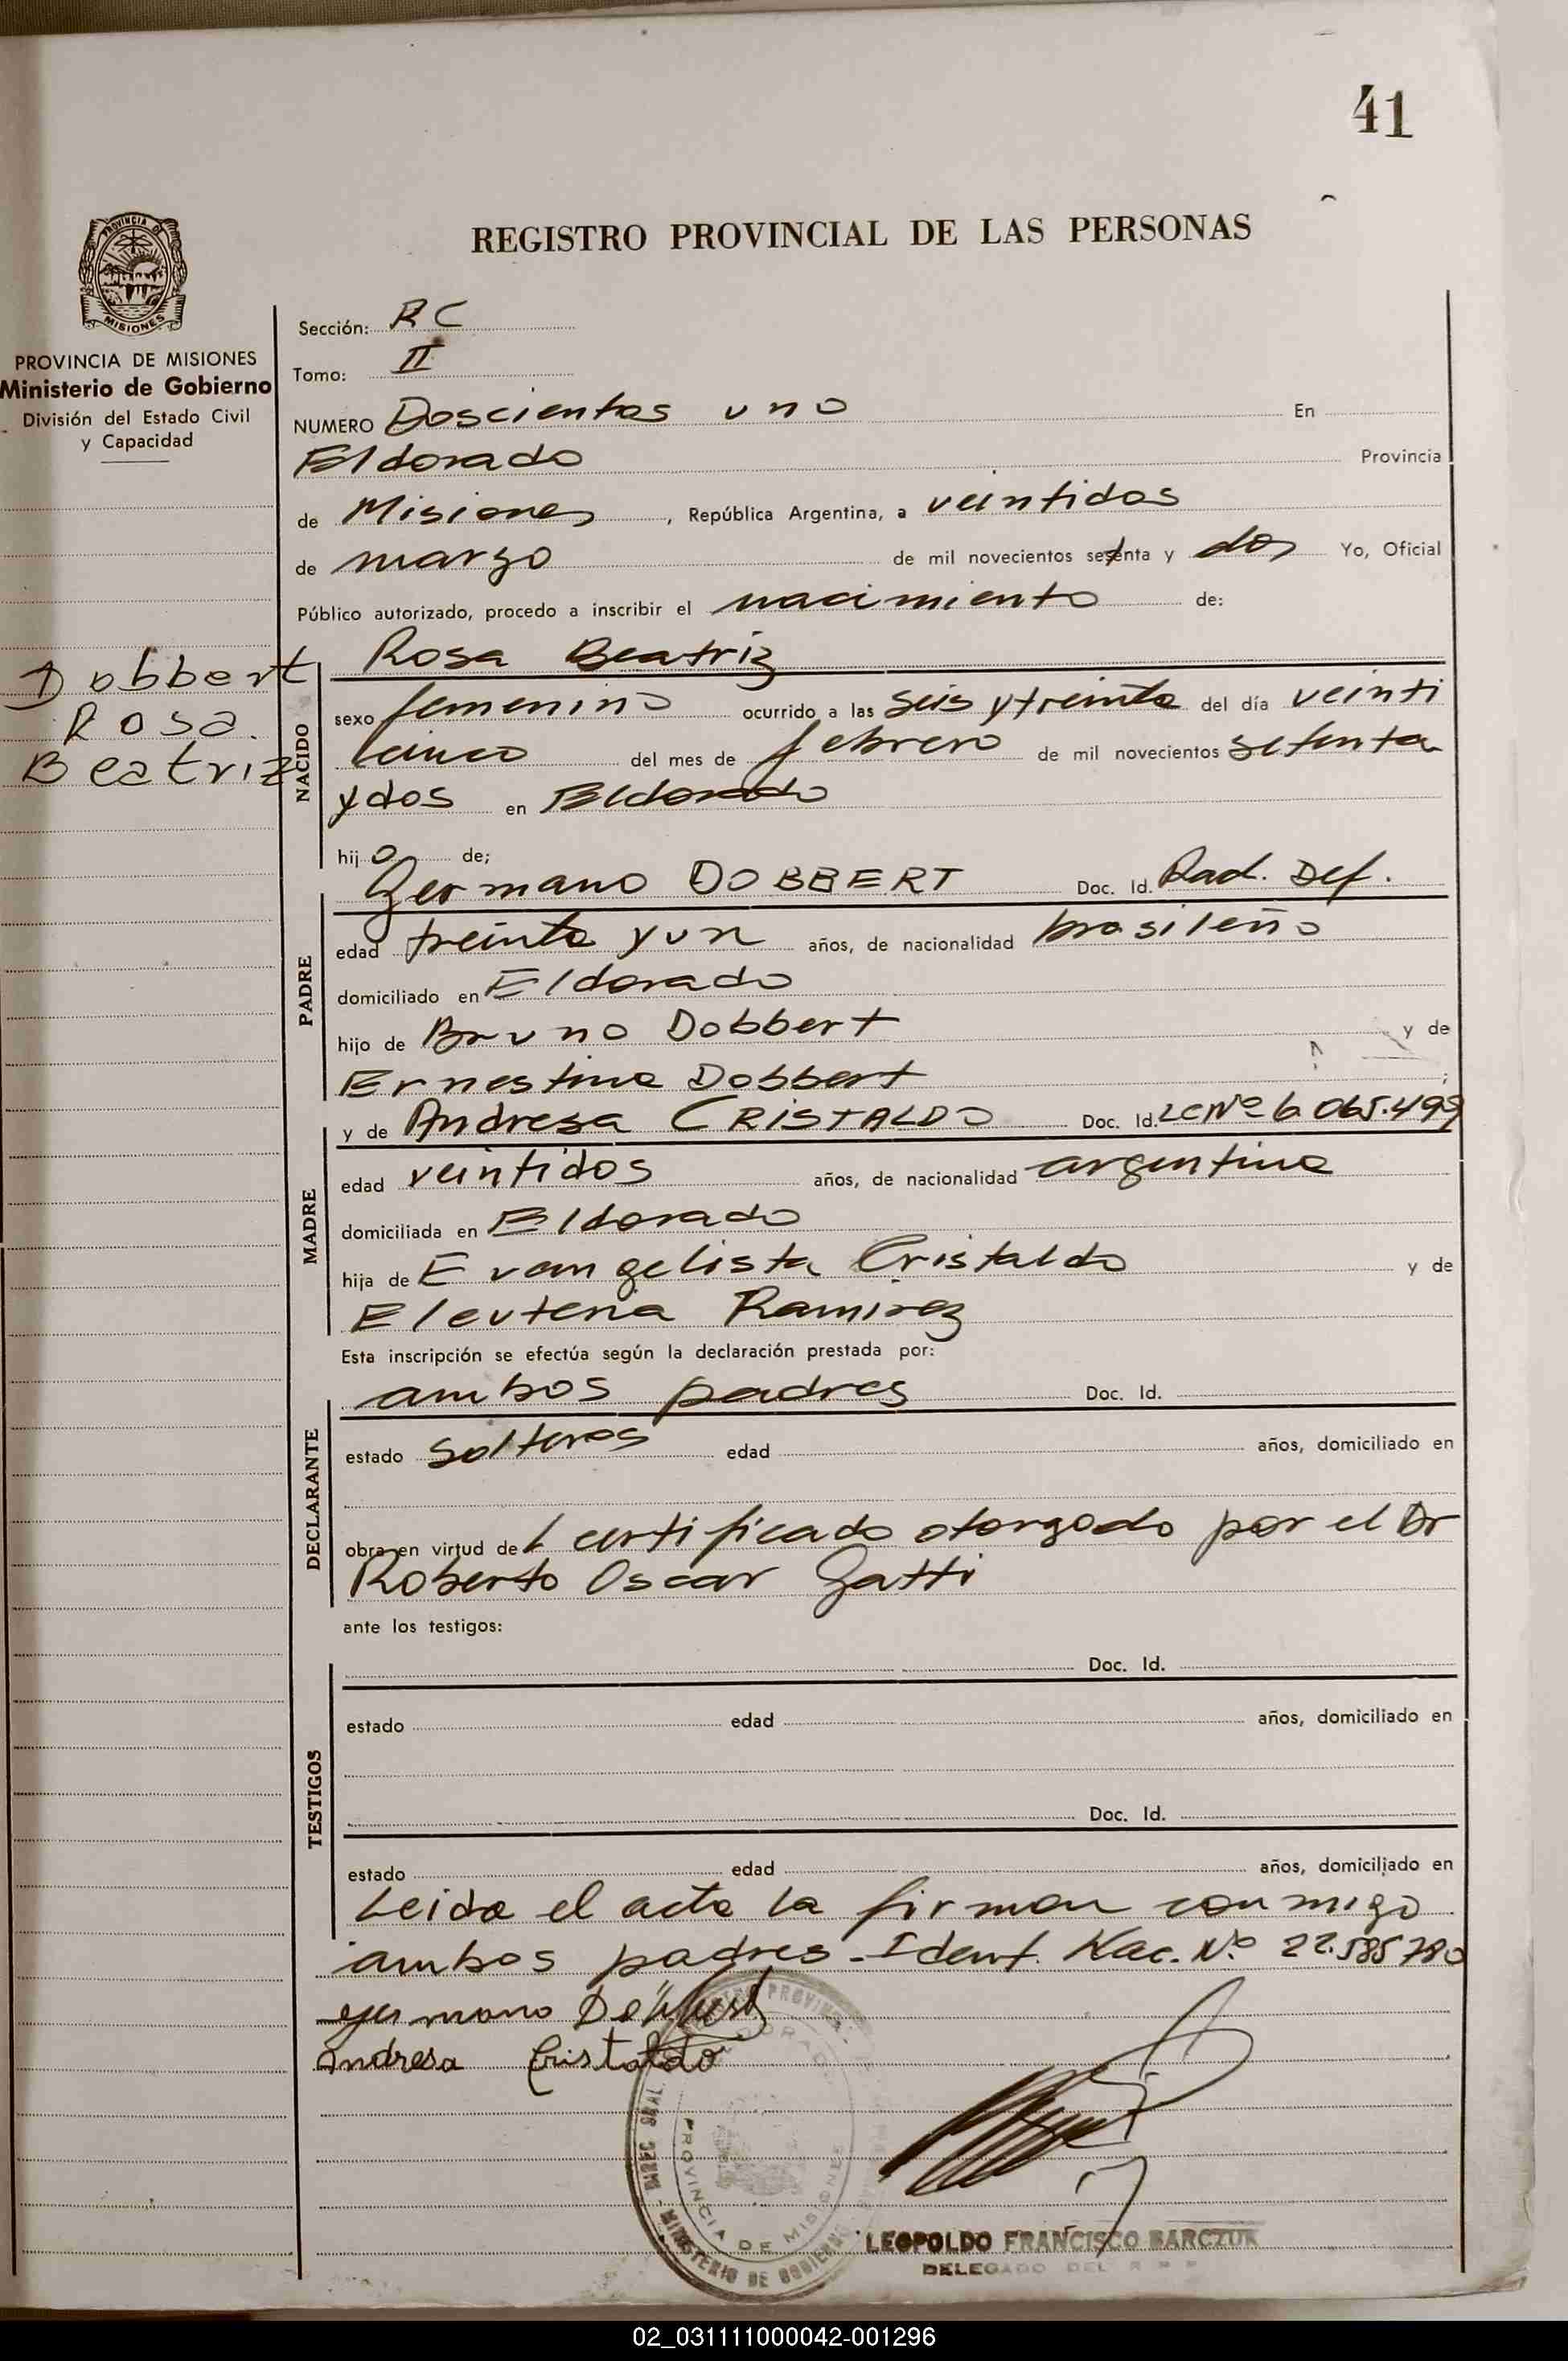 41
REGISTRO PROVINCIAL DE LAS PERSONAS
PROVINCIA DE MISIONES
PROVINCIA DE MISIONES
Ministerio de Gobierno
División del Estado Civil
y Capacidad
Dobbert
Rosa.
Beatriz
Sección: RC
Tomo: II
NUMERO Doscientos uno En
Eldorado Provincia
de Misiones, República Argentina, a veintidos
de marzo de mil novecientos setenta y dos Yo, Oficial
Público autorizado, procedo a inscribir el nacimiento de:
Rosa Beatriz
NACIDO
sexo femenino ocurrido a las seis y treinta del día veinti
cinco del mes de febrero de mil novecientos setenta
y dos en Eldorado
hija de;
Germano DOBBERT Doc. Id. Rad. Def.
PADRE
edad treinta y un años, de nacionalidad brasileño
domiciliado en Eldorado
hijo de Bruno Dobbert y de
Ernestina Dobbert ;
y de Andresa CRISTALDO Doc. Id. LC Nº 6.065.499
MADRE
edad veintidos años, de nacionalidad argentina
domiciliada en Eldorado
hija de Evangelista Cristaldo y de
Eleuteria Ramirez
Esta inscripción se efectúa según la declaración prestada por:
ambos padres Doc. Id.
DECLARANTE
estado solteros edad años, domiciliado en
obra en virtud del certificado otorgado por el Dr
Roberto Oscar Gatti
ante los testigos:
Doc. Id.
TESTIGOS
estado edad años, domiciliado en
Doc. Id.
estado edad años, domiciliado en
Leida el acta la firman conmigo
ambos padres - Ident. Nac. Nº 22.585780
germano
Andresa Cristaldo
PROVINCIA DE MISIONES
MINISTERIO DE GOBIERNO - DIREC. GRAL.
LEOPOLDO FRANCISCO BARCZUK
DELEGADO DEL R P P
02_031111000042-001296